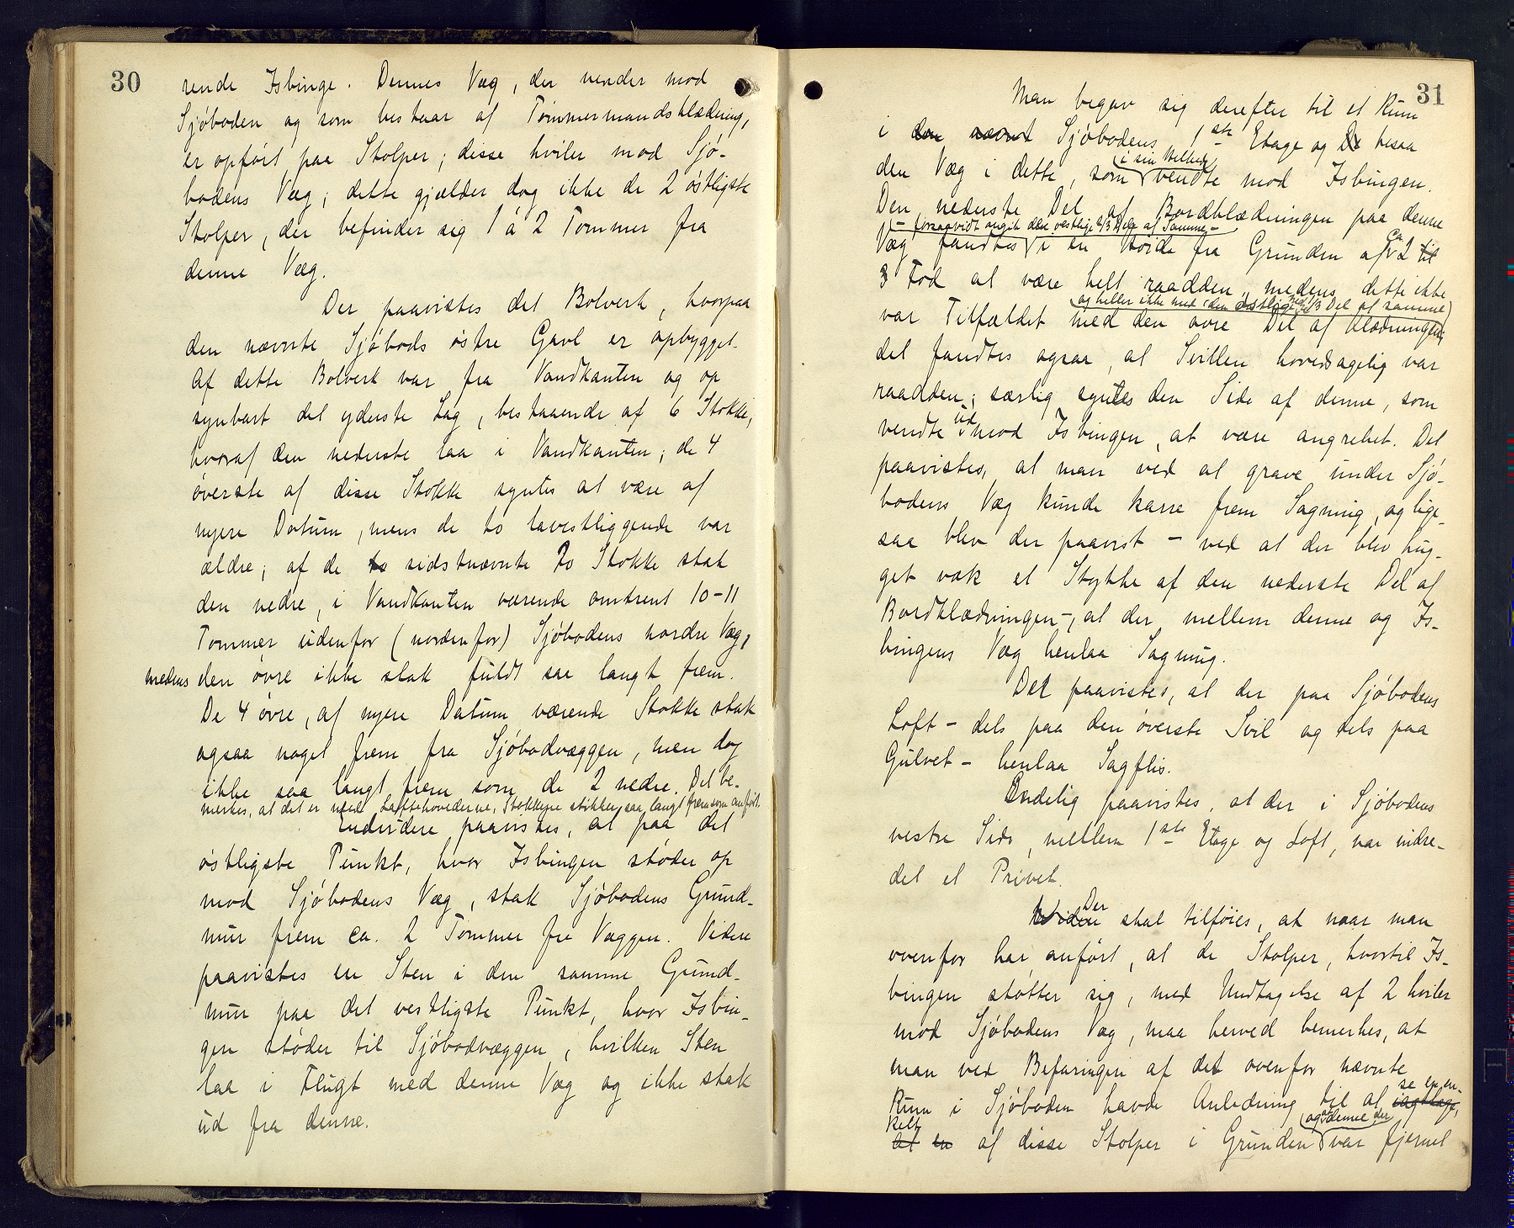 30
rende Isbinge. Dennes Væg, der vender mod
Sjöboden og som bestaar af Tømmermandsklædning,
er opført paa Stolper; disse hviler mod Sjö-
bodens Væg; dette gjælder dog ikke de 2 östligste
Stolper, der befinder sig 1 á 2 Tommer fra
denne Væg.
Der paavistes det Bolverk, hvorpaa
den nævnte Sjöbods östre Gavl er opbygget.
Af dette Bolverk var fra Vandkanten og op
synbart det yderste Lag, bestaaende af 6 Stokke,
hvoraf den nederste laa i Vandkanten; de 4
överste af disse Stokke syntes at være af
nyere Datum, mens de to lavestliggende var
ældre; af de to sidstnævnte 2o Stokke stak
den nedre, i Vandkanten værende omtrent 10-11
Tommer udenfor (nordenfor) Sjöbodens nordre Væg,
medens den övre ikke stak fuldt saa langt frem.
De 4 övre, af nyere Datum værende Stokke stak
ogsaa noget frem fra Sjöbodvæggen, men dog
ikke saa langt frem som de 2 nedre. Det be-
merkes, at det er med Laftehovederne, Stokkene stikker saa langt frem som anført.
Endvidere paavistes, at paa det
östligste Punkt, hvor Isbingen støder op
mod Sjöbodens Væg, stak Sjöbodens Grund-
mur frem ca. 2 Tommer fra Væggen. Videre
paavistes en Sten i den samme Grund-
mur paa det vestligste Punkt, hvor Isbin-
gen støder til Sjöbodvæggen, hvilken Sten
laa i Flugt med denne Væg og ikke stak
ud fra denne.
31
Man begav sig derefter til et Rum
i den nævnt Sjöbodens 1ste Etage og besaa
den Væg i dette, som (i sin Helhed) vendte mod Isbingen.
Den nederste Del af Bordklædningen paa denne
- forsaavidt angik den vestlige 2/3 Del af Samme -
Væg fandtes i en Høide fra Grunden af ca 2 til
3 Fod at være helt raadden, medens dette ikke
(og heller ikke med den östlige 1/3 Del af samme)
var Tilfældet med den øvre Del af Klædningen;
det fandtes ogsaa, at Svillen hovedsagelig var
raadden; særlig syntes den Side af denne, som
vendte ud mod Isbingen, at være angrebet. Det
paavistes, at man ved at grave under Sjö-
bodens Væg kunde karre frem Sagmug, og lige-
saa blev der paavist - ved at der blev hug-
get væk et Stykke af den nederste Del af
Bordklædningen -, at der mellem denne og Is-
bingens Væg henlaa Sagmug.
Det paavistes, at der paa Sjöbodens
Loft - dels paa den överste Svil og dels paa
Gulvet - henlaa Sagflis.
Endelig paavistes, at der i Sjöbodens
vestre Side, mellem 1ste Etage og Loft, var indre-
det et Privet.
Der
Widen skal tilföies, at naar man
ovenfor har anført, at de Stolper, hvortil Is-
bingen støtter sig, med Undtagelse af 2 hviler
mod Sjöbodens Væg, maa herved bemerkes, at
man ved Befaringen af det ovenfor nævnte
se en en-
Rum i Sjöboden havde Anledning til at iagttage,
kelt (og denne der)
at en af disse Stolper i Grunden var fjernet